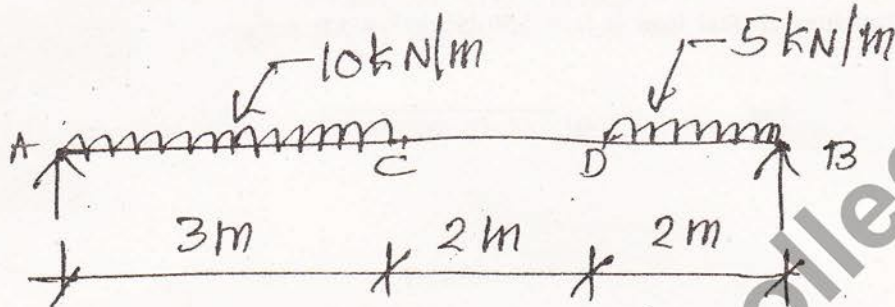 10kN/m
5kN/m
A
C
D
B
3m
2m
2m